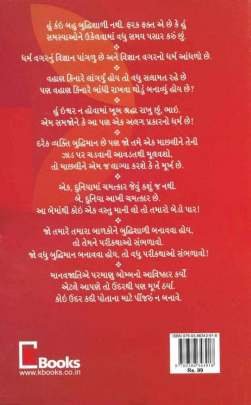 હું કંઇ બહુ બુદ્ધિશાળી નથી. ફરક ફક્ત એ છે કે હું
સમસ્યાઓને ઉકેલવામાં વધુ સમય પસાર કરું છું.
ધર્મ વગરનું વિજ્ઞાન પાંગળું છે અને વિજ્ઞાન વગરનો ધર્મ આંધળો છે.
વહાણ કિનારે લાંગર્યું હોય તો વધુ સલામત રહે છે
પણ વહાણ કિનારે બાંધી રાખવા થોડું બનાવ્યું હોય છે?
હું ઇશ્વર ન હોવામાં ખૂબ શ્રદ્ધા રાખું છું. ભાઇ.
એમ સમજોને કે આ પણ એક અલગ પ્રકારનો ધર્મ છે!
દરેક વ્યક્તિ બુદ્ધિમાન છે પણ જો તમે એક માછલીને તેની
ઝાડ પર ચડવાની આવડતથી મૂલવશો,
તો માછલીને એમ જ લાગ્યા કરશે કે તે મૂર્ખ છે.
એક, દુનિયામાં ચમત્કાર જેવું કશું જ નથી.
બે, દુનિયા આખી ચમત્કાર છે.
આ બેમાંથી કોઇ એક વસ્તુ માની લો તો તમારો બેડો પાર!
જો તમારે તમારા બાળકોને બુદ્ધિશાળી બનાવવા હોય,
તો તેમને પરીકથાઓ સંભળાવો.
જો વધુ બુદ્ધિમાન બનાવવા હોય, તો વધુ પરીકથાઓ સંભળાવો!
માનવજાતિએ પરમાણુ બોમ્બનો આવિષ્કાર કર્યો
એટલે આપણે તો ઉંદરથી પણ મૂર્ખ ઠર્યા.
કોઇ ઉંદર કદી પોતાના માટે પીંજરું ન બનાવે.
Books
www.kbooks.co.in
Rs. 30